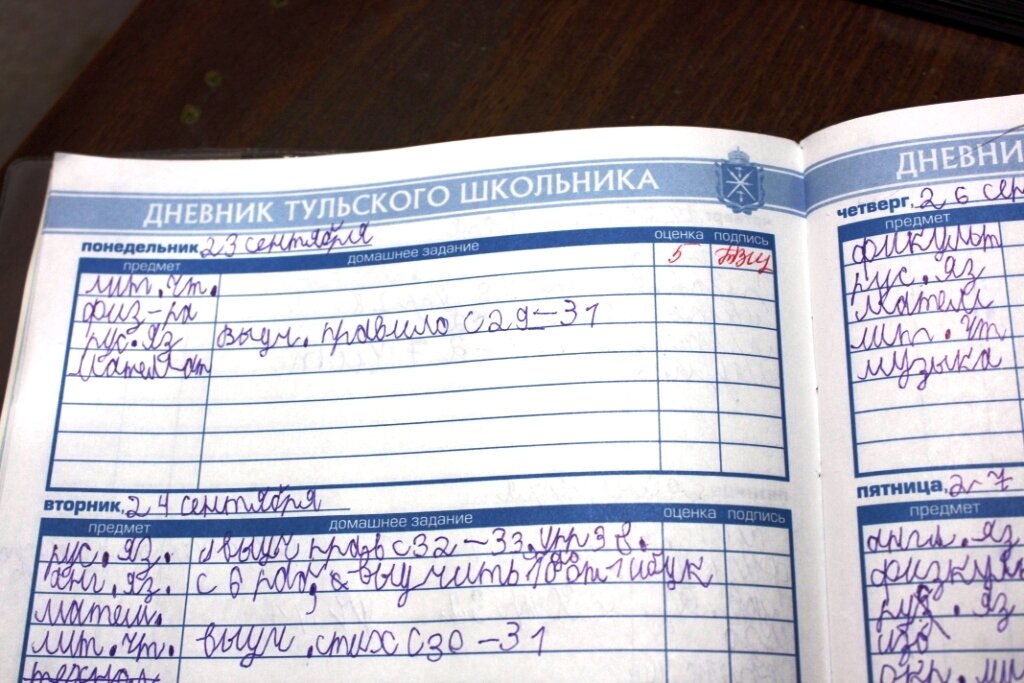 ДНЕВНИК ТУЛЬСКОГО ШКОЛЬНИКА
понедельник, 23 сентября
предмет домашнее задание оценка подпись
лит. чт. 5
физ-ра
рус. яз выуч. правило с 29-31
математ
вторник, 24 сентября
предмет домашнее задание оценка подпись
рус. яз. с 32-33. упр 38.
Анг. яз. с 6 выучить
матем.
лит. чт. выуч. стих с 30-31
технол
ДНЕВНИ
четверг, 26 сен
предмет
физкульт
рус. яз
матем
лит. чт
музыка
пятница, 27
предмет
англ. яз
физкуль
рус. яз
изо
окр. ми